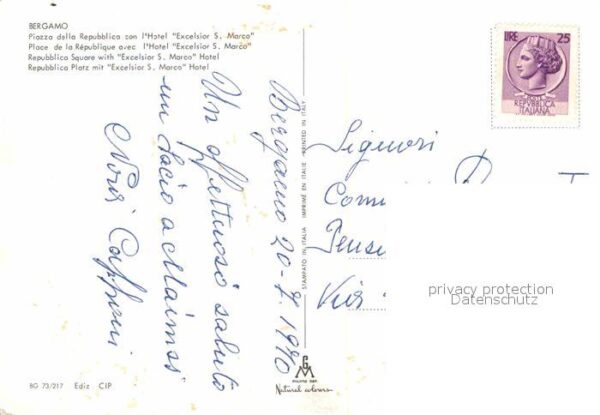 BERGAMO
Piazza della Repubblica con l'Hotel "Excelsior S. Marco"
Place de la République avec l'Hotel "Excelsior S. Marco"
Repubblica Square with "Excelsior S. Marco" Hotel
Repubblica Platz mit "Excelsior S. Marco" Hotel
LIRE 25
REPVBBLICA
ITALIANA
Bergamo 20-7-1970
Un affettuoso saluto
un bacio a
STAMPATO IN ITALIA IMPRIMÉ EN ITALIE PRINTED IN ITALY
Signori
Pensi
Via
privacy protection
Datenschutz
BG 73/217 Ediz CIP
Natural colours